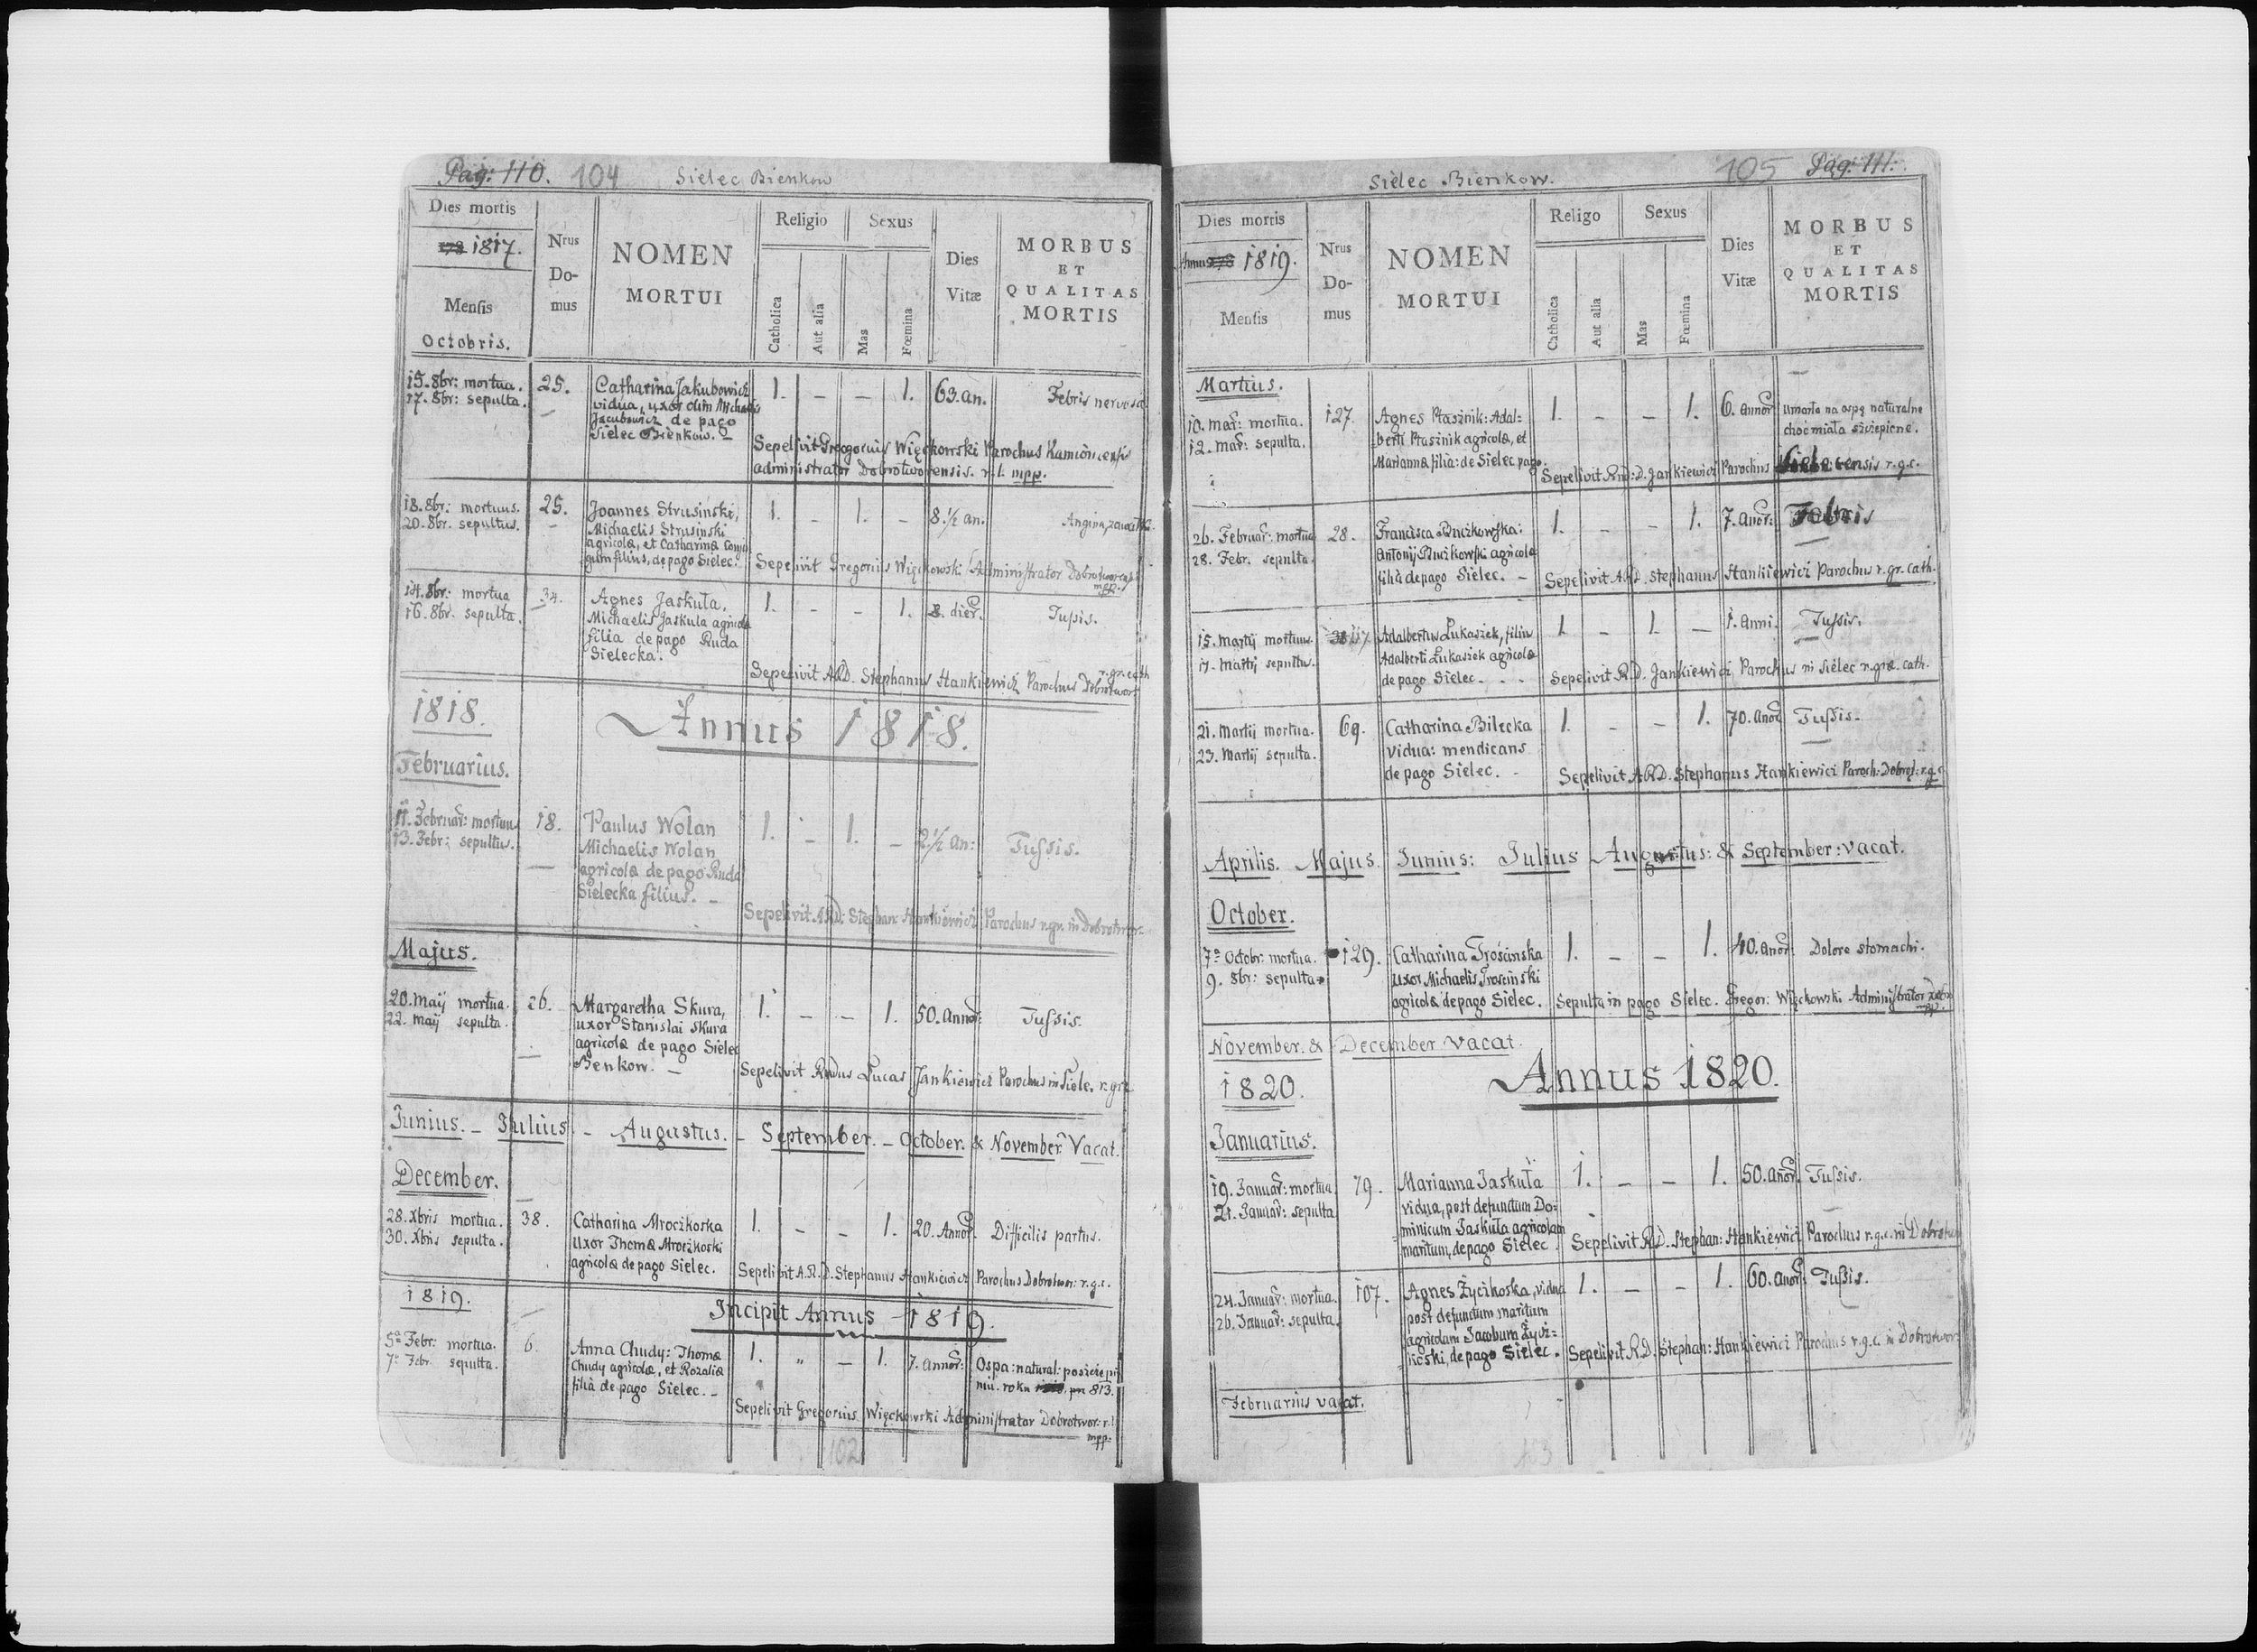 Pag: 110. 104 Sielec Bienkow
Dies mortis
178 1817.
Mensis
Octobris.
Nrus
Do-
mus
NOMEN
MORTUI
Religio
Catholica
Aut alia
Sexus
Mas
Fœmina
Dies
Vitæ
MORBUS
ET
QUALITAS
MORTIS
15. 8br: mortua.
17. 8br: sepulta.
25.
Catharina Jakubowicz
vidua, uxor olim Michaelis
Jacubowicz de pago
Sielec Bienkow. -
1. - - 1. 63. an. Febris nervosa
Sepelivit Gregorius Więckowski Parochus Kamioncensis
administrator Dobrotworensis. r. l. mpp.
18. 8br: mortuus.
20. 8br. sepultus.
25.
Joannes Strusinski,
Michaelis Strusinski
agricolæ, et Catharinæ conju
gum filius, de pago Sielec.
1. - 1. - 8. 1/2 an. Angina,
Sepelivit Gregorius Więckowski Administrator Dobrotworensis
mpp.
14. 8br: mortua
16. 8br. sepulta.
34.
Agnes Jaskuła,
Michaelis Jaskula agricolæ
filia de pago Ruda
Sielecka.
1. - - 1. 8. dier. Tussis.
Sepelivit ARD. Stephanus Hankiewicz Parochus Dobrotwor
r. gr. cath
1818.
Annus 1818.
Februarius.
11. Februar: mortuus
13. Febr: sepultus.
18.
Paulus Wolan
Michaelis Wolan
agricolæ de pago Ruda
Sielecka filius. -
1. - 1. - 2 1/2 an: Tussis.
Sepelivit ARD: Stephan: Hankiewicz Parochus r. gr. in Dobrotwor.
Majus.
20. maij mortua.
22. maij sepulta.
26.
Margaretha Skura,
uxor Stanislai Skura
agricolæ de pago Sielec
Benkow. -
1. - - 1. 50. annor: Tussis.
Sepelivit Rndus Lucas Jankiewicz Parochus in Siele. r. græ
Junius. - Julius. - Augustus. - September. - October. & November. Vacat.
December.
28. Xbris mortua.
30. Xbris sepulta.
38.
Catharina Mroczkoska
uxor Thomæ Mroczkoski
agricolæ de pago Sielec.
1. - - 1. 20. Annor. Difficilis partus.
Sepelivit A.R.D. Stephanus Hankiewicz Parochus Dobrotwor: r. g. c.
1819.
Incipit Annus - 1819.
5ª Febr: mortua.
7ª Febr. sepulta.
6.
Anna Chudy: Thomæ
Chudy agricolæ, et Rozaliæ
filia de pago Sielec. -
1. " - 1. 7. annor: Ospa: natural: poszczepi
niu. roku 813.
Sepelivit Gregorius Więckowski Administrator Dobrotwor: r. l
mpp.
102
Sielec Bienkow. 105 Pag: 111:
Dies mortis
Annus 178 1819.
Mensis
Nrus
Do-
mus
NOMEN
MORTUI
Religo
Catholica
Aut alia
Sexus
Mas
Fœmina
Dies
Vitæ
MORBUS
ET
QUALITAS
MORTIS
Martius.
10. mar: mortua.
12. mar: sepulta.
127.
Agnes Ptasznik: Adal=
berti Ptasznik agricolæ, et
Marianna filia: de Sielec pago.
1. - - 1. 6. annor umarła na ospę naturalne
choć miała szczepione.
Sepelivit Rnd: D. Jankiewicz Parochus r. g. c.
26. Februar: mortua
28. Febr. sepulta.
28.
Francisca Buczkowska:
Antonij Buczkowski agricolæ
filia de pago Sielec. -
1. - - 1. 7. anor: Febris
Sepelivit A.R.D. Stephanus Hankiewicz Parochus r. gr. cath.
15. Martij mortuus.
17. Martij sepultus.
Adalbertus Łukasiek, filius
Adalberti Łukasiek agricolæ
de pago Sielec. . .
1. - 1. - 1. anni. Tussis.
Sepelivit R.D. Jankiewicz Parochus in Sielec r. græ. cath.
21. Martij mortua.
23. Martij sepulta.
69.
Catharina Bilecka
vidua: mendicans
de pago Sielec. -
1. - - 1. 70. anor Tussis.
Sepelivit ARD. Stephanus Hankiewicz Paroch: Dobrot: r. g. c.
Aprilis. Majus. Junius: Julius Augustus: & September: vacat.
October.
7ª Octobr: mortua.
9. 8br: sepulta.
129.
Catharina Trościnska
uxor Michaelis Troscinski
agricolæ de pago Sielec.
1. - - 1. 40. anor: Dolore stomachi.
Sepulta in pago Sielec. Gregor: Więckowski Administrator Dobr.
mpp.
November. & December vacat.
Annus 1820.
1820.
Januarius.
19. Januar: mortua
21. Januar: sepulta
79.
Marianna Jaskuła
vidua, post defunctum Do=
minicum Jaskuła agricolam
maritum, de pago Sielec.
1. - - 1. 50. anor. Tussis.
Sepelivit R.D. Stephan: Hankiewicz Parochus r. g. c. in Dobrotwor
24. Januar: mortua.
26. Januar: sepulta.
107.
Agnes Życzkoska, vidua
post defunctum maritum
agricolam Jacobum Życz=
koski, de pago Sielec.
1. - - 1. 60. anor: Tussis.
Sepelivit R.D. Stephan: Hankiewicz Parochus r. g. c. in Dobrotwor:
Februarius vacat.
103